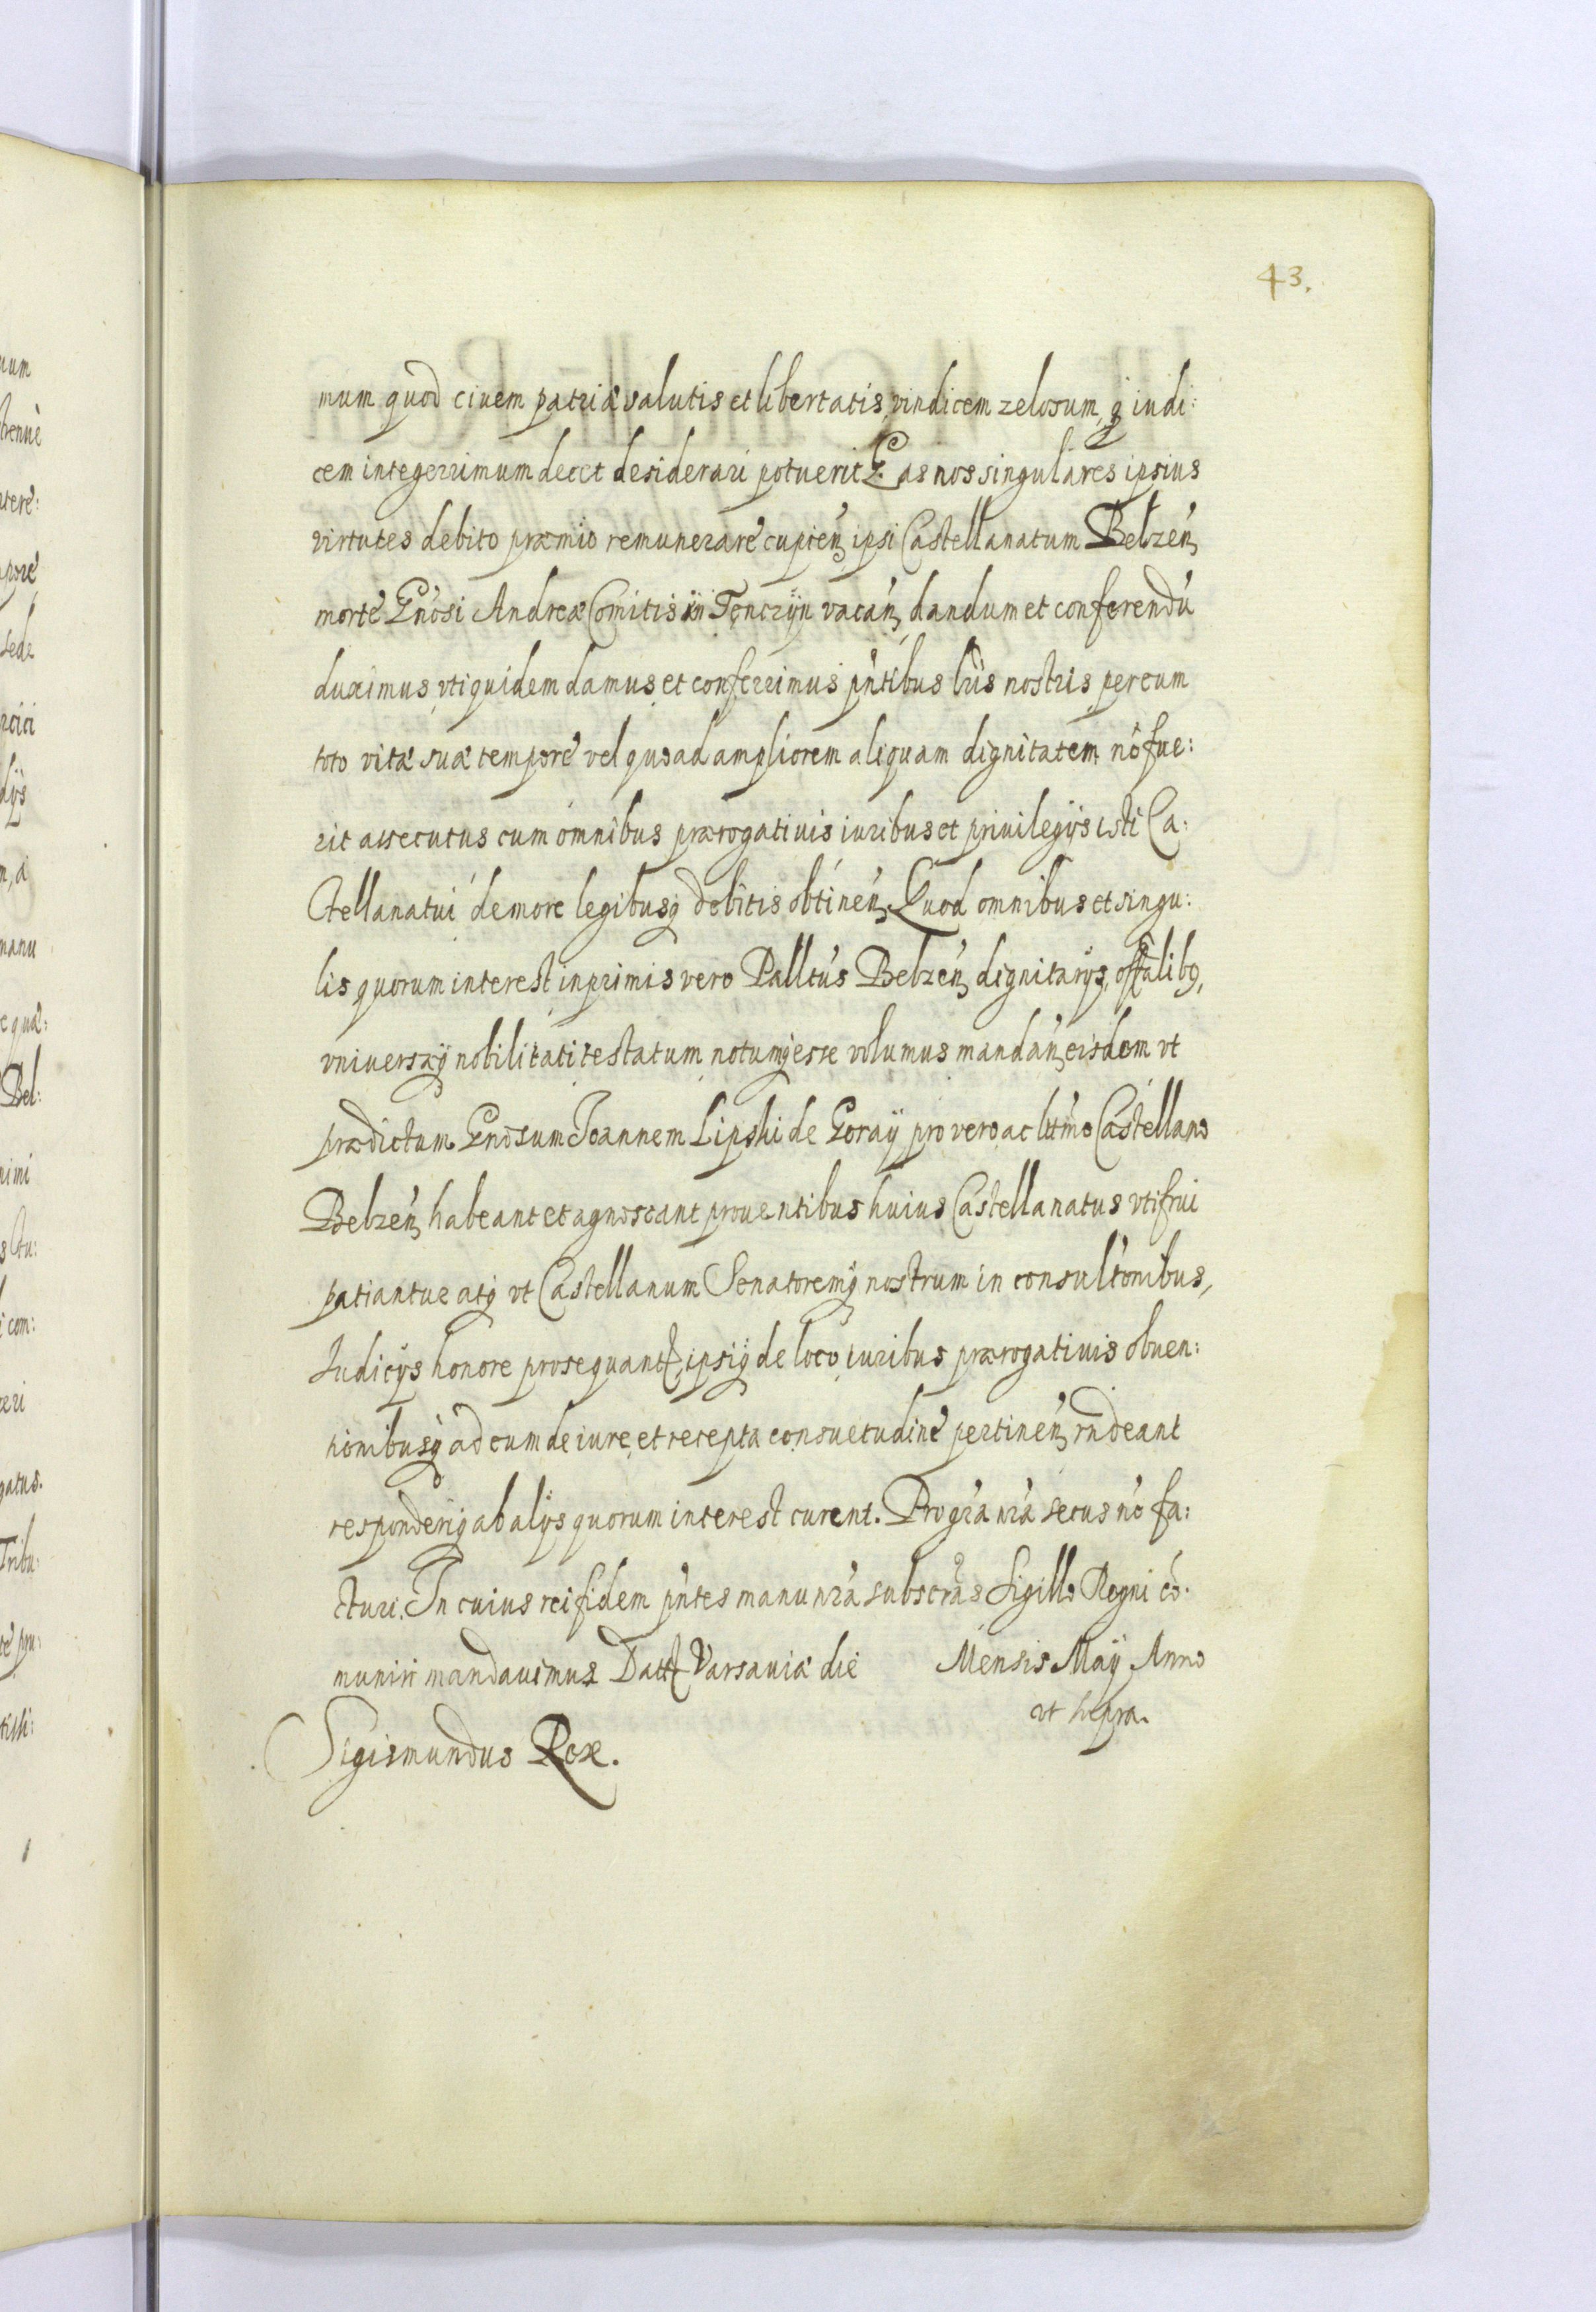 43.
mum quod ciuem patriæ salutis et libertatis vindicem zelosum, q̃ iudi:
cem integerrimum decet desiderari potuerit. Eas nos singulares ipsius
virtutes debito præmio remunerare cupieñ ipsi Castellanatum Belzeñ
morte Gñosi Andreæ Comitis in Tenczÿn vacañ, dandum et conferendũ
duximus, vti quidem damus et conferrimus pñtibus lr̃is nostris per eum
toto vitæ suæ tempore vel quoad ampliorem aliquam dignitatem nõ fue:
rit assecutus cum omnibus prærogatiuis iuribus et priuilegijs isti Ca:
stellanatui de more legibusq̃ debitis obtineñ. Quod omnibus et singu:
lis quorum interest inprimis vero Palltũs Belzeñ dignitarijs, offalibꝰ,
vniversæq̃ nobilitati testatum notumq̃ esse volumus mandañ eisdem vt
prædictum Gnõsum Joannem Lipski de Goraÿ pro vero ac lttmo Castellano
Belzeñ habeant et agnoscant prouentibus huius Castellanatus vti frui
patiantur atq̃ vt Castellanum Senatoremq̃ nostrum in consultonibus,
Iudicijs honore prosequantr, ipsiq̃ de loco, iuribus prærogatiuis obuen:
tionibusq̃ ad eum de iure et recepta consuetudine pertineñ rñdeant
responderiq̃ ab alijs quorum interest curent. Pro gr̃a nr̃a secus nõ fa:
cturi. In cuius rei fidem pñtes manu nr̃a subscrãs Sigillo Regni cõ:
muniri mandauimus. Datt Varsauiæ die Mensis Maÿ Anno
vt supra.
Sigismundus Rex.